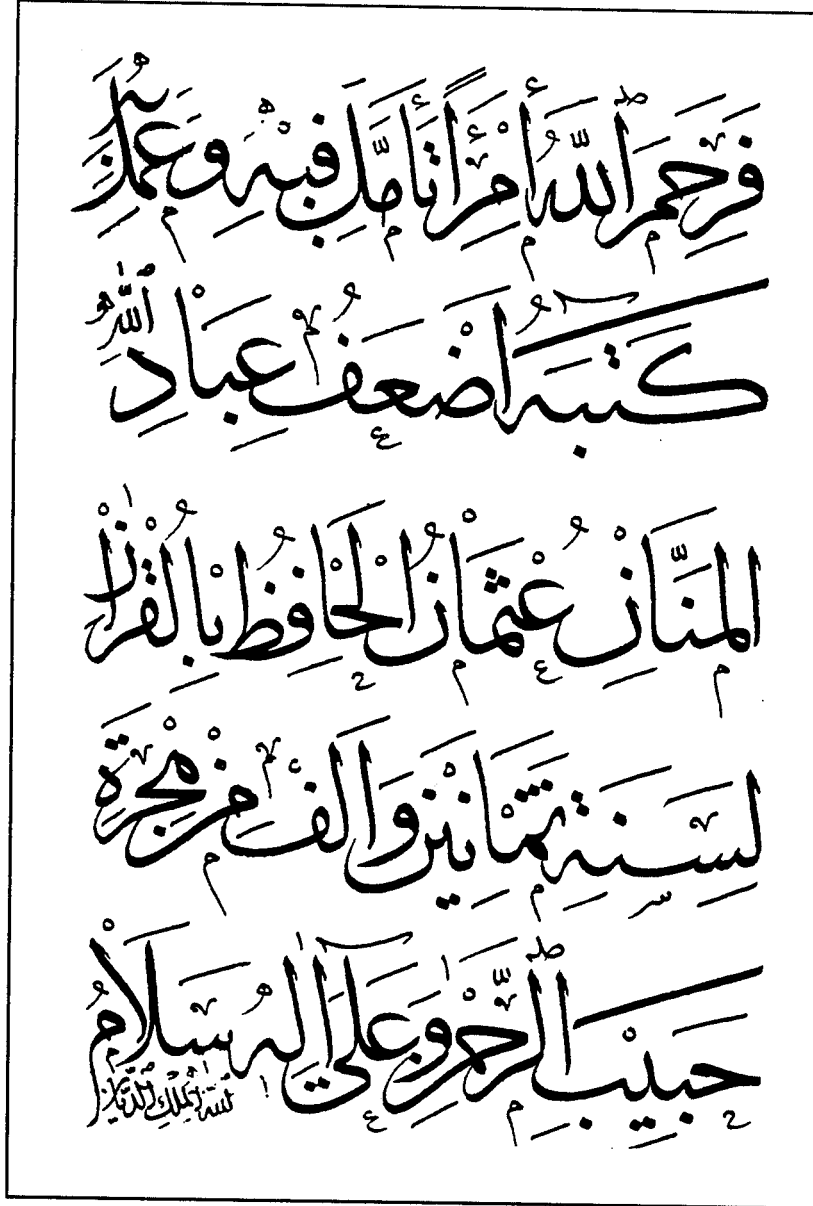 فَرَحِمَ اللّٰهُ أَمْرِأً تَأَمَّلَ فِيْهِ وَعَمَلِهُ
كَتَبَهُ اَضْعَفُ عِبَادِ اللّٰهِ
الْمَنَّانِ عُثْمَانُ الْحَافِظُ بِالْقُرْاٰنِ
لِسَنَةِ ثَمَانِيْنَ وَاَلْفٍ مِنْ هِجْرَةِ
حَبِيْبِ الرَّحْمٰنِ وَعَلٰى اٰلِهِ سَلَامُ
اللّٰهِ الْمَلِكِ الدَّيَّانِ